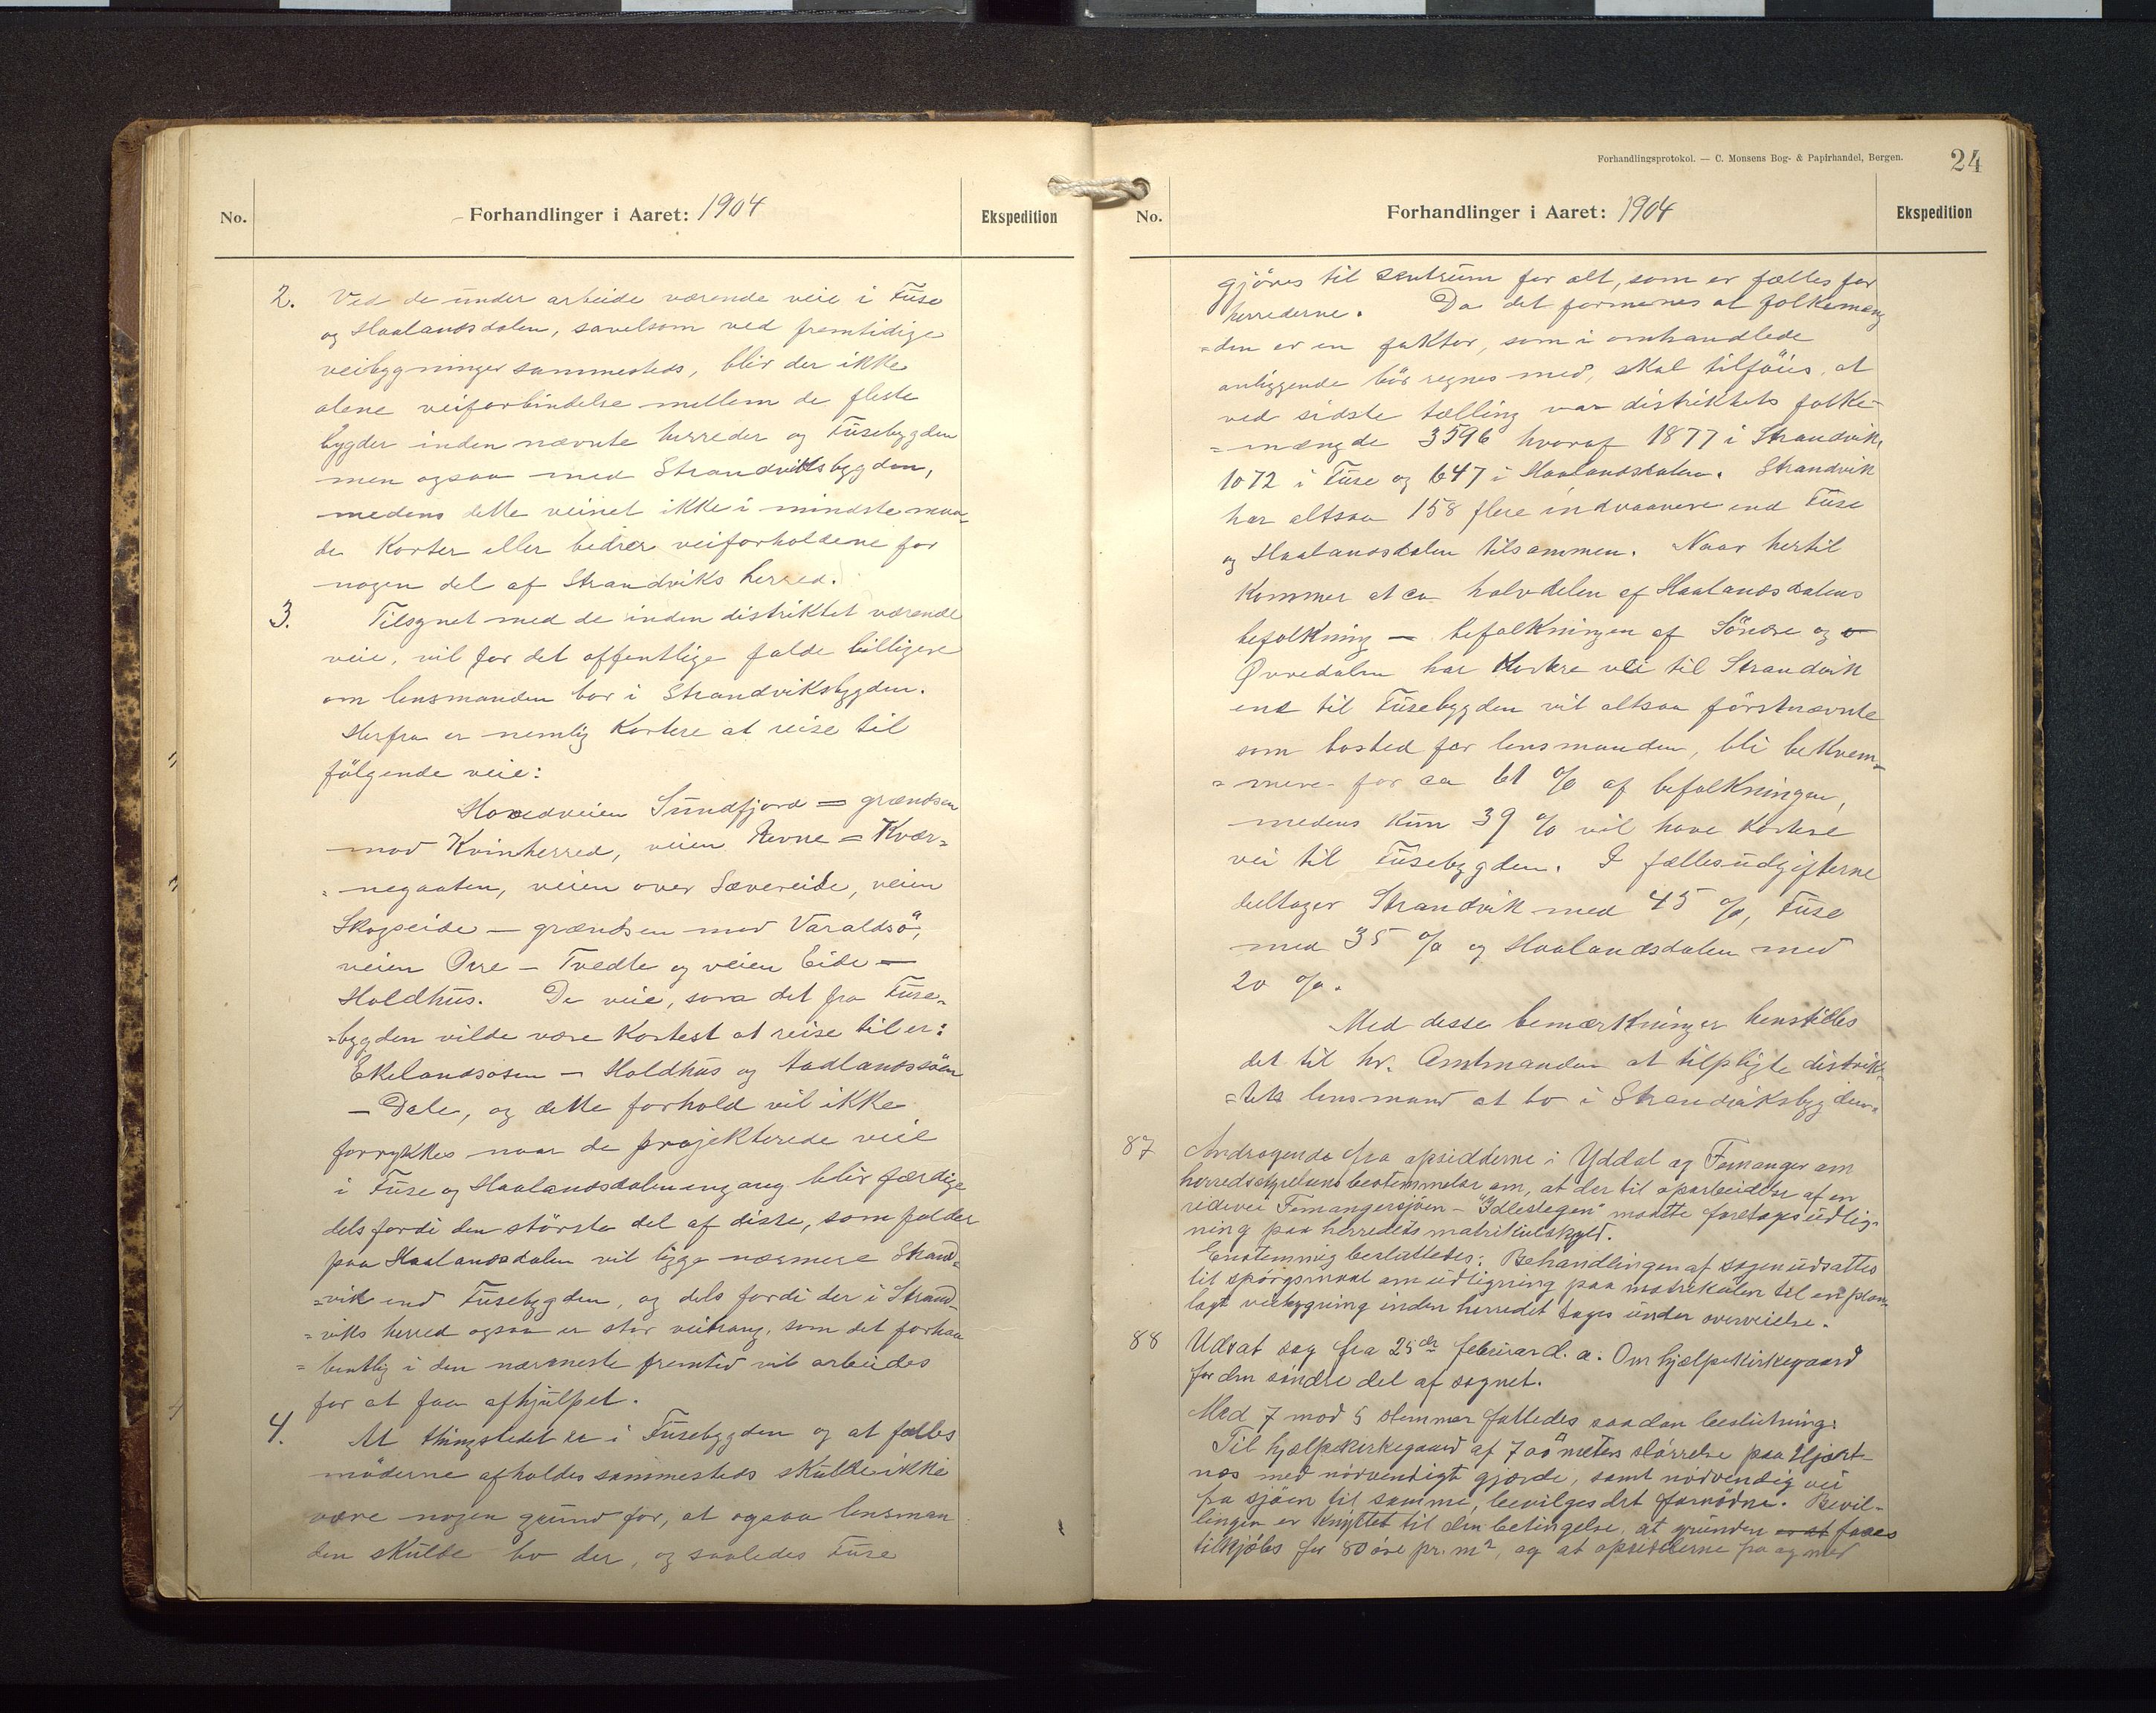 No.
Forhandlinger i Aaret: 1904
Ekspedition
2. Ved de under arbeide værende veie i Fuse
og Haalandsdalen, savelsom ved fremtidige
veibygninger sammesteds, blir der ikke
alene veiforbindelse mellem de fleste
bygder inden nævnte herreder og Fusebygden
men ogsaa med Strandviksbygden,
medens dette veinet ikke i mindste maa-
de korter eller bedrer veiforholdene for
nogen del af Strandviks herred.
3. Tilsynet med de inden distriktet værende
veie, vil for det offentlige falde billigere
om lensmanden bor i Strandviksbygden.
Herfra er nemlig kortere at reise til
følgende veie:
Hovedveien Sundfjord = grændsen
mod Kvinherred, veien Revne = Kvær-
=negaaten, veien over Sævereide, veien
Skogseide — grændsen mod Varaldsö,
veien Orre — Tvedte og veien Eide —
Holdhus. De veie, som det fra Fuse-
=bygden vilde være kortest at reise til er:
Ekelandsosen — Holdhus og Aadlandssöen
— Dale, og dette forhold vil ikke
forrykkes naar de projekterede veie
i Fuse og Haalandsdalen engang blir færdige
dels fordi den største del af disse, som falder
paa Haalandsdalen vil ligge nærmere Strand-
=vik end Fusebygden, og dels fordi der i Strand-
=viks herred ogsaa er stor veitrang, som det forhaa
=bentlig i den nærmeste fremtid vil arbeides
for at faa afhjulpet.
4. At thingstedet er i Fusebygden og at fælles
møderne afholdes sammesteds skulde ikke
være nogen grund for, at ogsaa lensman
den skulde bo der, og saaledes Fuse
Forhandlingsprotokol. — C. Monsens Bog- & Papirhandel, Bergen.
24
No.
Forhandlinger i Aaret: 1904
Ekspedition
gjöres til sentrum for alt, som er fælles for
herrederne. Da det formenes at folkemæng
=den er en faktor, som i omhandlede
anliggende bör regnes med, skal tilföies, at
ved sidste tælling var distriktets folke-
=mængde 3596 hvoraf 1877 i Strandvik,
1072 i Fuse og 647 i Haalandsdalen. Strandvik
har altsaa 158 flere indvaanere end Fuse
og Haalandsdalen tilsammen. Naar hertil
kommer at ca halvdelen af Haalandsdalens
befolkning — befolkningen af Söndre og
Øvredalen har kortere vei til Strandvik
end til Fusebygden vil altsaa förstnævnte
som bosted for lensmanden, bli bekvem-
=mere for ca 61 % af befolkningen,
medens kun 39 % vil have kortere
vei til Fusebygden. I fællesudgifterne
deltager Strandvik med 45 %, Fuse
med 35 % og Haalandsdalen med
20 %.
Med disse bemærkninger henstilles
det til hr. Amtmanden at tilpligte distrik-
=tets lensmand at bo i Strandviksbygden.
87 Andragende fra opsidderne i Yddal og Femanger om
herredsstyrelsens bestemmelse om, at der til oparbeidelse af en
ridevei Femangersjöen — "Idlestegen" maatte foretages udlig-
ning paa herredets matrikulskyld.
Enstemmig besluttedes: Behandlingen af sagen udsattes
til spörgsmaal om udligning paa matrikulen til en plan-
lagt veibygning inden herredet tages under overveielse.
88 Udsat sag fra 25de februar d. a. Om hjælpekirkegaard
for den söndre del af sognet.
Med 7 mod 5 stemmer fattedes saadan beslutning:
Til hjælpekirkegaard af 700 meters störrelse paa Hjart-
nes med nödvendigt gjærde, samt nödvendig vei
fra sjöen til samme, bevilges det fornödne. Bevil-
lingen er knyttet til den betingelse, at grunden er at faaes
tilkjöbs for 80 öre pr. m2, og at opsidderne fra og med